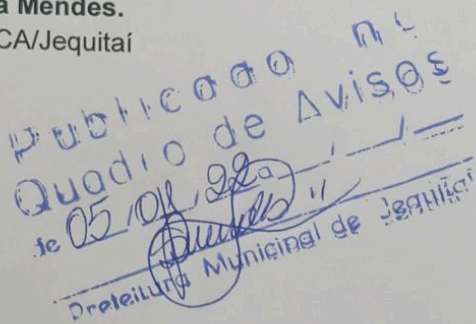 a Mendes.
CA/Jequitaí
Publicado n
Quadro de Avisos
de 05/ /22 a __/__/__
Prefeitura Municipal de Jequitaí